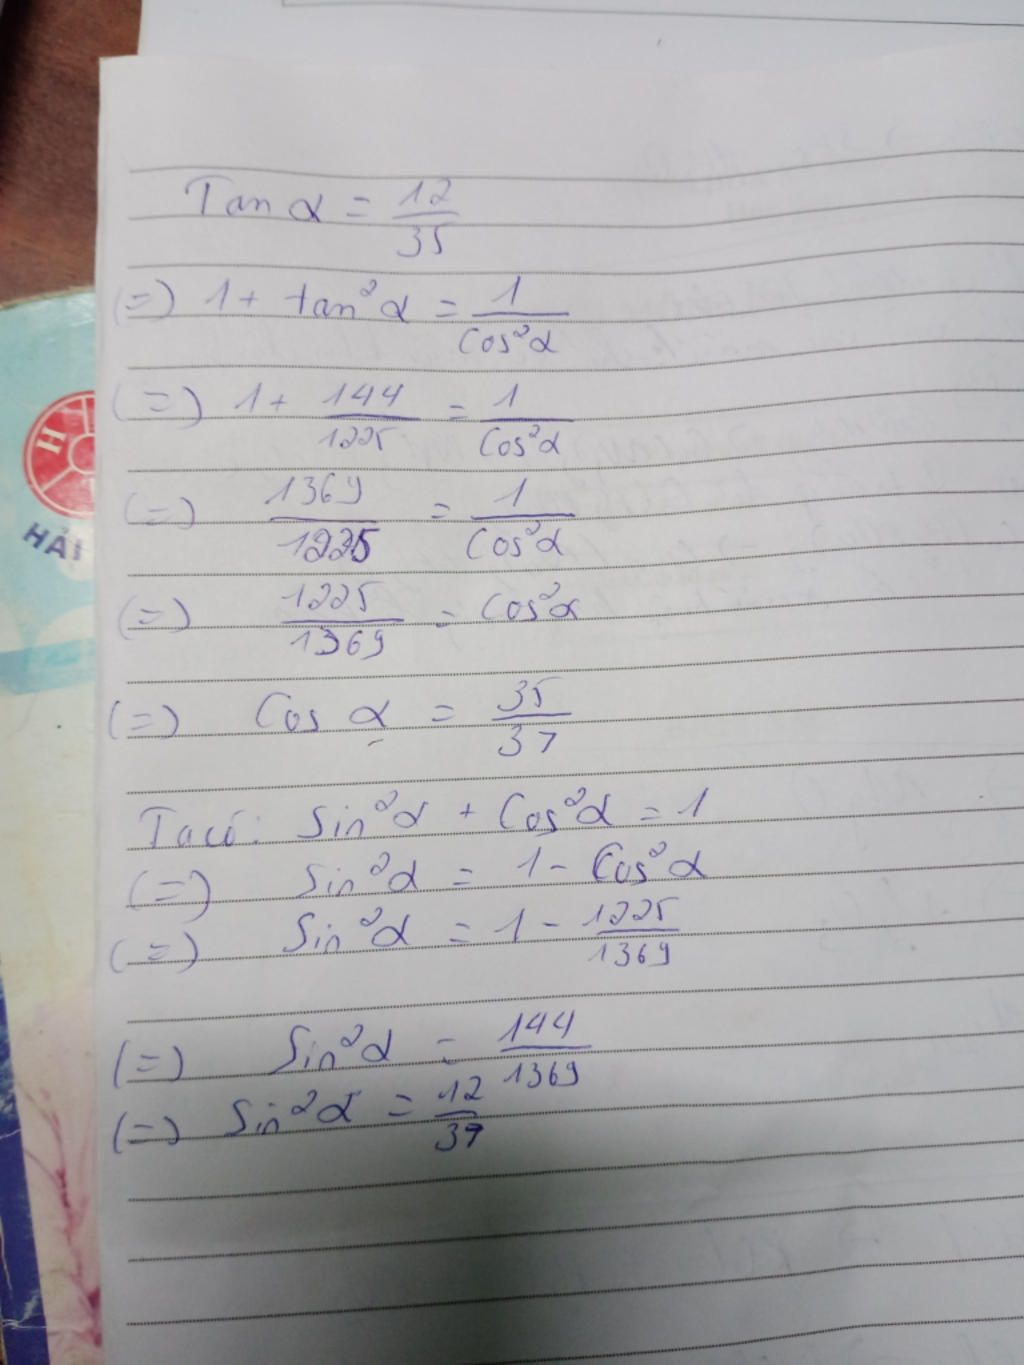 Tan α = 12/35
(=) 1 + tan²α = 1/Cos²α
(=) 1 + 144/1225 = 1/Cos²α
(=) 1369/1225 = 1/Cos²α
(=) 1225/1369 = Cos²α
(=) Cos α = 35/37
Ta có: Sin²α + Cos²α = 1
(=) Sin²α = 1 - Cos²α
(=) Sin²α = 1 - 1225/1369
(=) Sin²α = 144/1369
(=) Sin²α = 12/37
H
HẢI